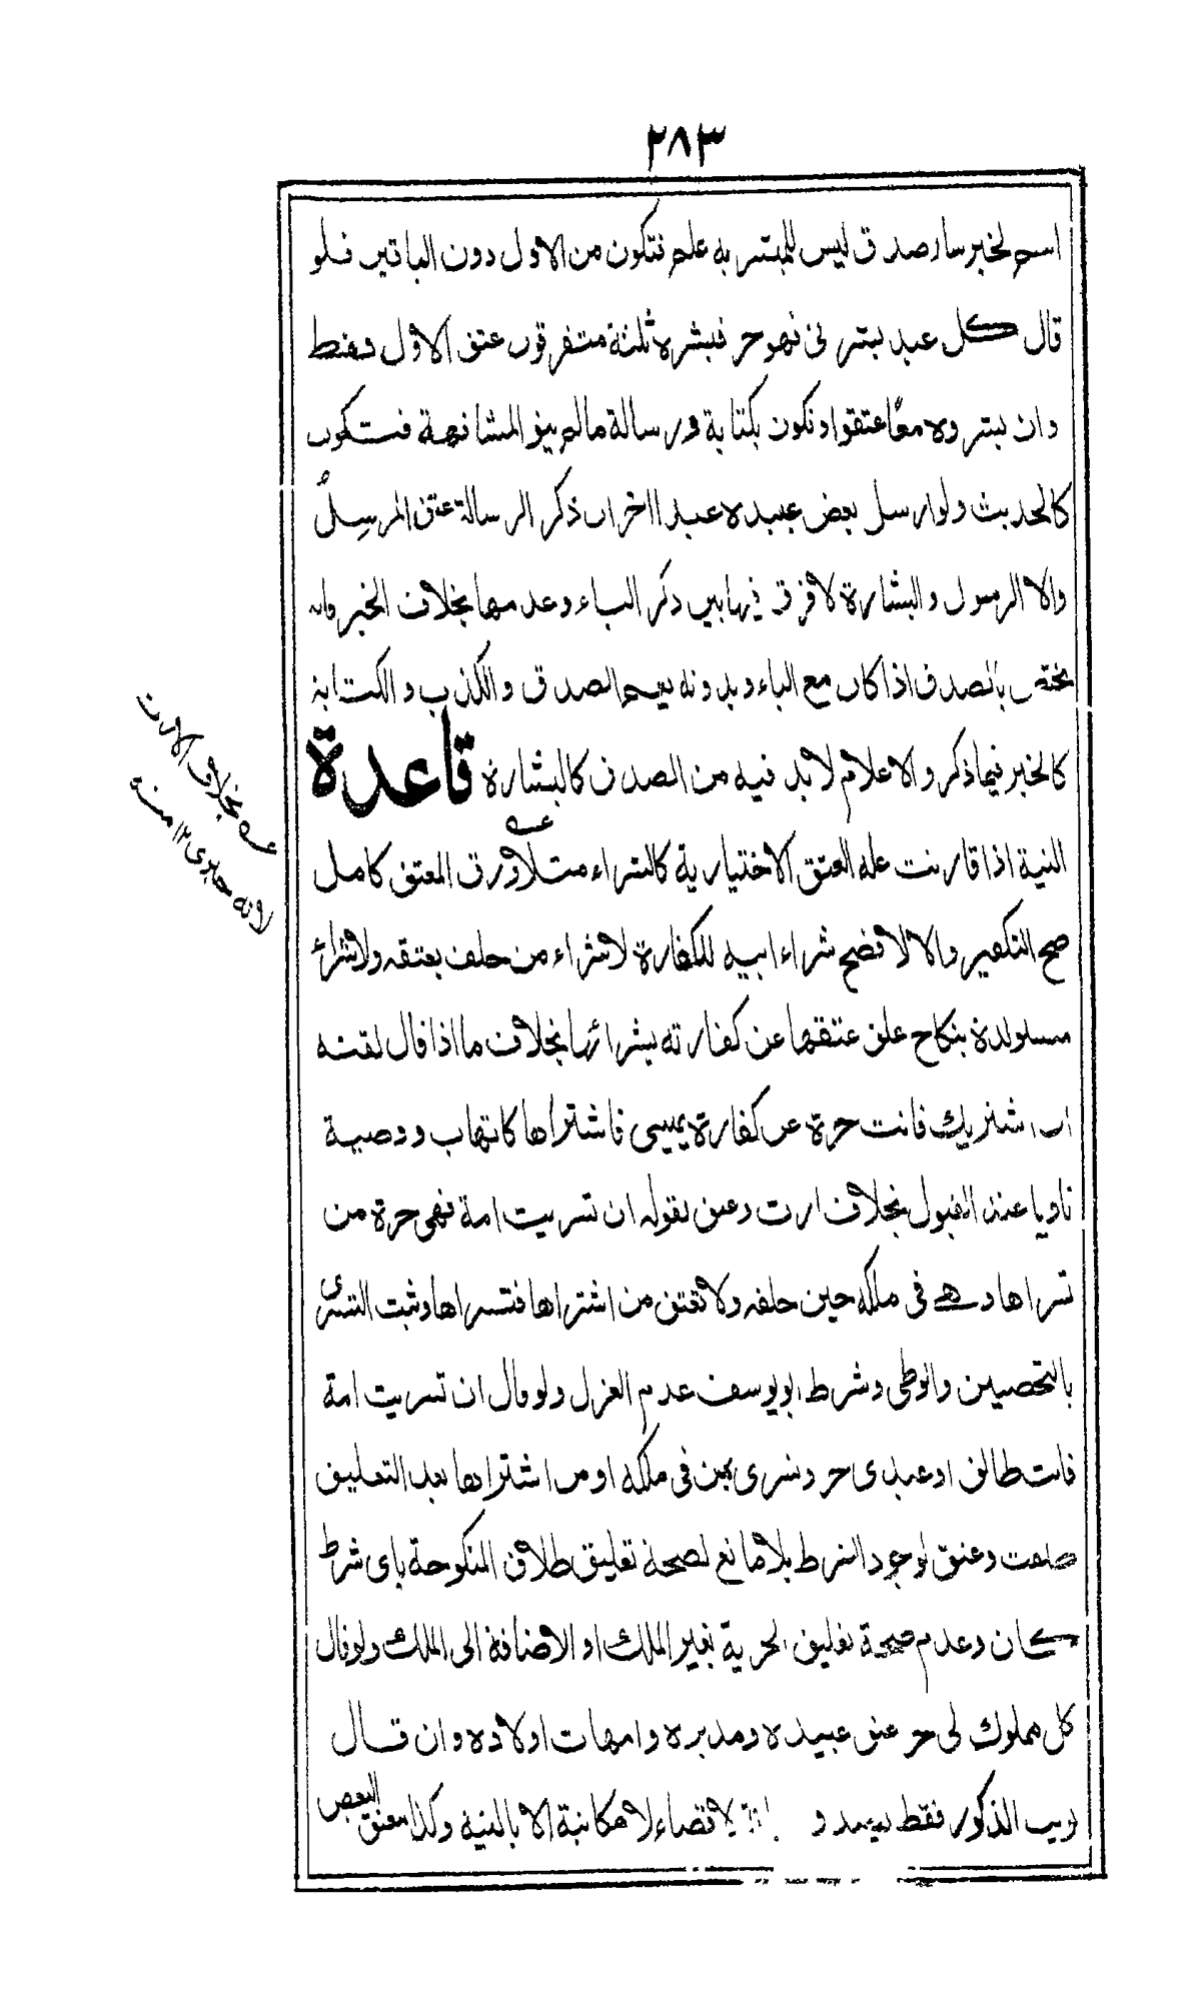 ٢٨٣
اسم لخبر سار صدق ليس للمبشر به علم فتكون من الاول دون الباقين فلو
قال كل عبد بشرنى فهو حر فبشره ثلثة متفرقون عتق الاول فقط
وان بشروه معًا عتقوا وتكون بكتابة ورسالة مالم ينو المشافهة فتكون
كالحديث ولو ارسل بعض عبيده عبدا اخر ان ذكر الرسالة عتق المرسِلُ
والا الرسول والبشارة لا فرق فيها بين ذكر الباء وعدمها بخلاف الخبر فانه
يختص بالصدق اذا كان مع الباء وبدونه يعم الصدق والكذب والكتابة
كالخبر فيما ذكر والاعلام لا بد فيه من الصدق كالبشارة قاعدة
النية اذا قارنت علة العتق الاختيارية كالشراء مثلا ورق المعتق كامل
صح التكفير والا لا فصح شراء ابيه للكفارة لا شراء من حلف بعتقه ولا شراء
مستولدة بنكاح علق عتقها عن كفارته بشرائها بخلاف ما اذا قال لقنة
ان اشتريتك فانت حرة عن كفارة يمينى فاشتراها كاتهاب ووصية
ناويا عند القبول بخلاف ارث وعتق بقوله ان تسريت امة فهى حرة من
تسراها وهى فى ملكه حين حلفه ولا تعتق من اشتراها فتسراها وثبت التسرى
بالتحصين والوطى وشرط ابو يوسف عدم العزل ولو قال ان تسريت امة
فانت طالق او عبدى حر وتسرى بمن فى ملكه او من اشتراها بعد التعليق
طلقت وعتق لوجود الشرط بلا مانع لصحة تعليق طلاق المنكوحة باى شرط
كان وعدم صحة تعليق الحرية بغير الملك او الاضافة الى الملك ولو قال
كل مملوك لى حر عتق عبيده ومدبره وامهات اولاده وان قال
نويت الذكور فقط يدين و لا قضاء لا مكاتبة الا بالنية وكذا معتق البعض
عه بخلاف الارث
لانه جبرى ١٢ منه